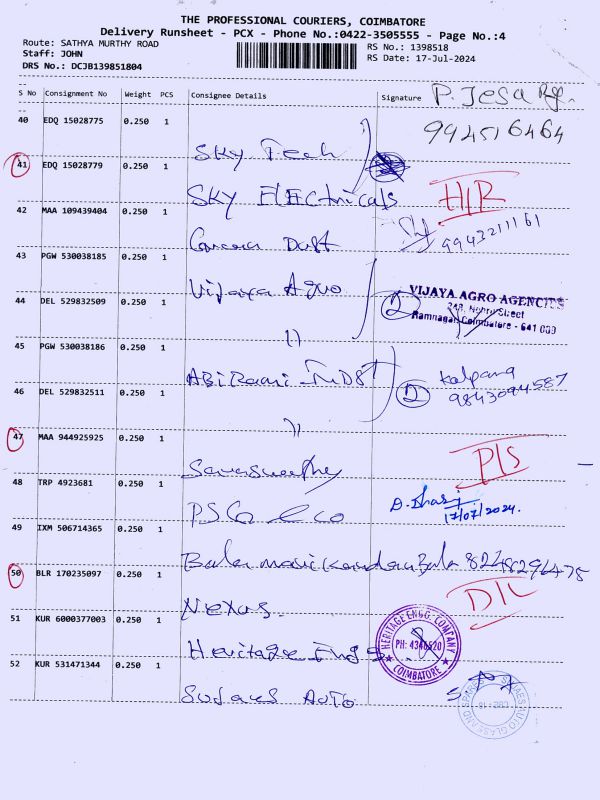 THE PROFESSIONAL COURIERS, COIMBATORE
Delivery Runsheet - PCX - Phone No.:0422-3505555 - Page No.:4
Route: SATHYA MURTHY ROAD
Staff: JOHN
DRS No.: DCJB139851804
RS No.: 1398518
RS Date: 17-Jul-2024
S No Consignment No Weight PCS Consignee Details Signature P. Jesa
9945164 64
40 EDQ 15028775 0.250 1 Sky Tech
41 EDQ 15028779 0.250 1 SKY ELECtricals H/R
42 MAA 109439404 0.250 1 9943211161
43 PGW 530038185 0.250 1 Vijaya Agro
VIJAYA AGRO AGENCIES
248, Nehru Street
Ramnagar, Coimbatore - 641 009
44 DEL 529832509 0.250 1 11
45 PGW 530038186 0.250 1 ABiRaani INDST D Kalpana
9843094587
46 DEL 529832511 0.250 1 11
47 MAA 944925925 0.250 1 P/S
48 TRP 4923681 0.250 1 17/07/2024.
49 IXM 506714365 0.250 1 8248296475
50 BLR 170235097 0.250 1 Nexus D/L
51 KUR 6000377003 0.250 1 Heritage Engg
HERITAGE ENGG. COMPANY
PH: 4346520
COIMBATORE
52 KUR 531471344 0.250 1 Auto